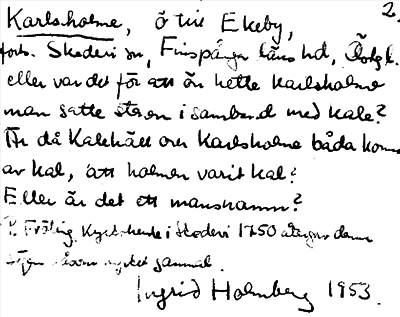 2.
Karlsholme, ö till Ekeby,
forts. Skedevi sn, Finspånga läns hd, Östg l.
eller var det för att ön hette Karlsholme
man satte staven i samband med Kale?
Är då Kalehäll och Karlsholme båda komna
av kal, att holmen varit kal?
Eller är det ett mansnamn?
P. Fröling, Kyrkoherde i Skedevi 1750 återger denna
sägen såsom mycket gammal.
Ingrid Holmberg 1953.